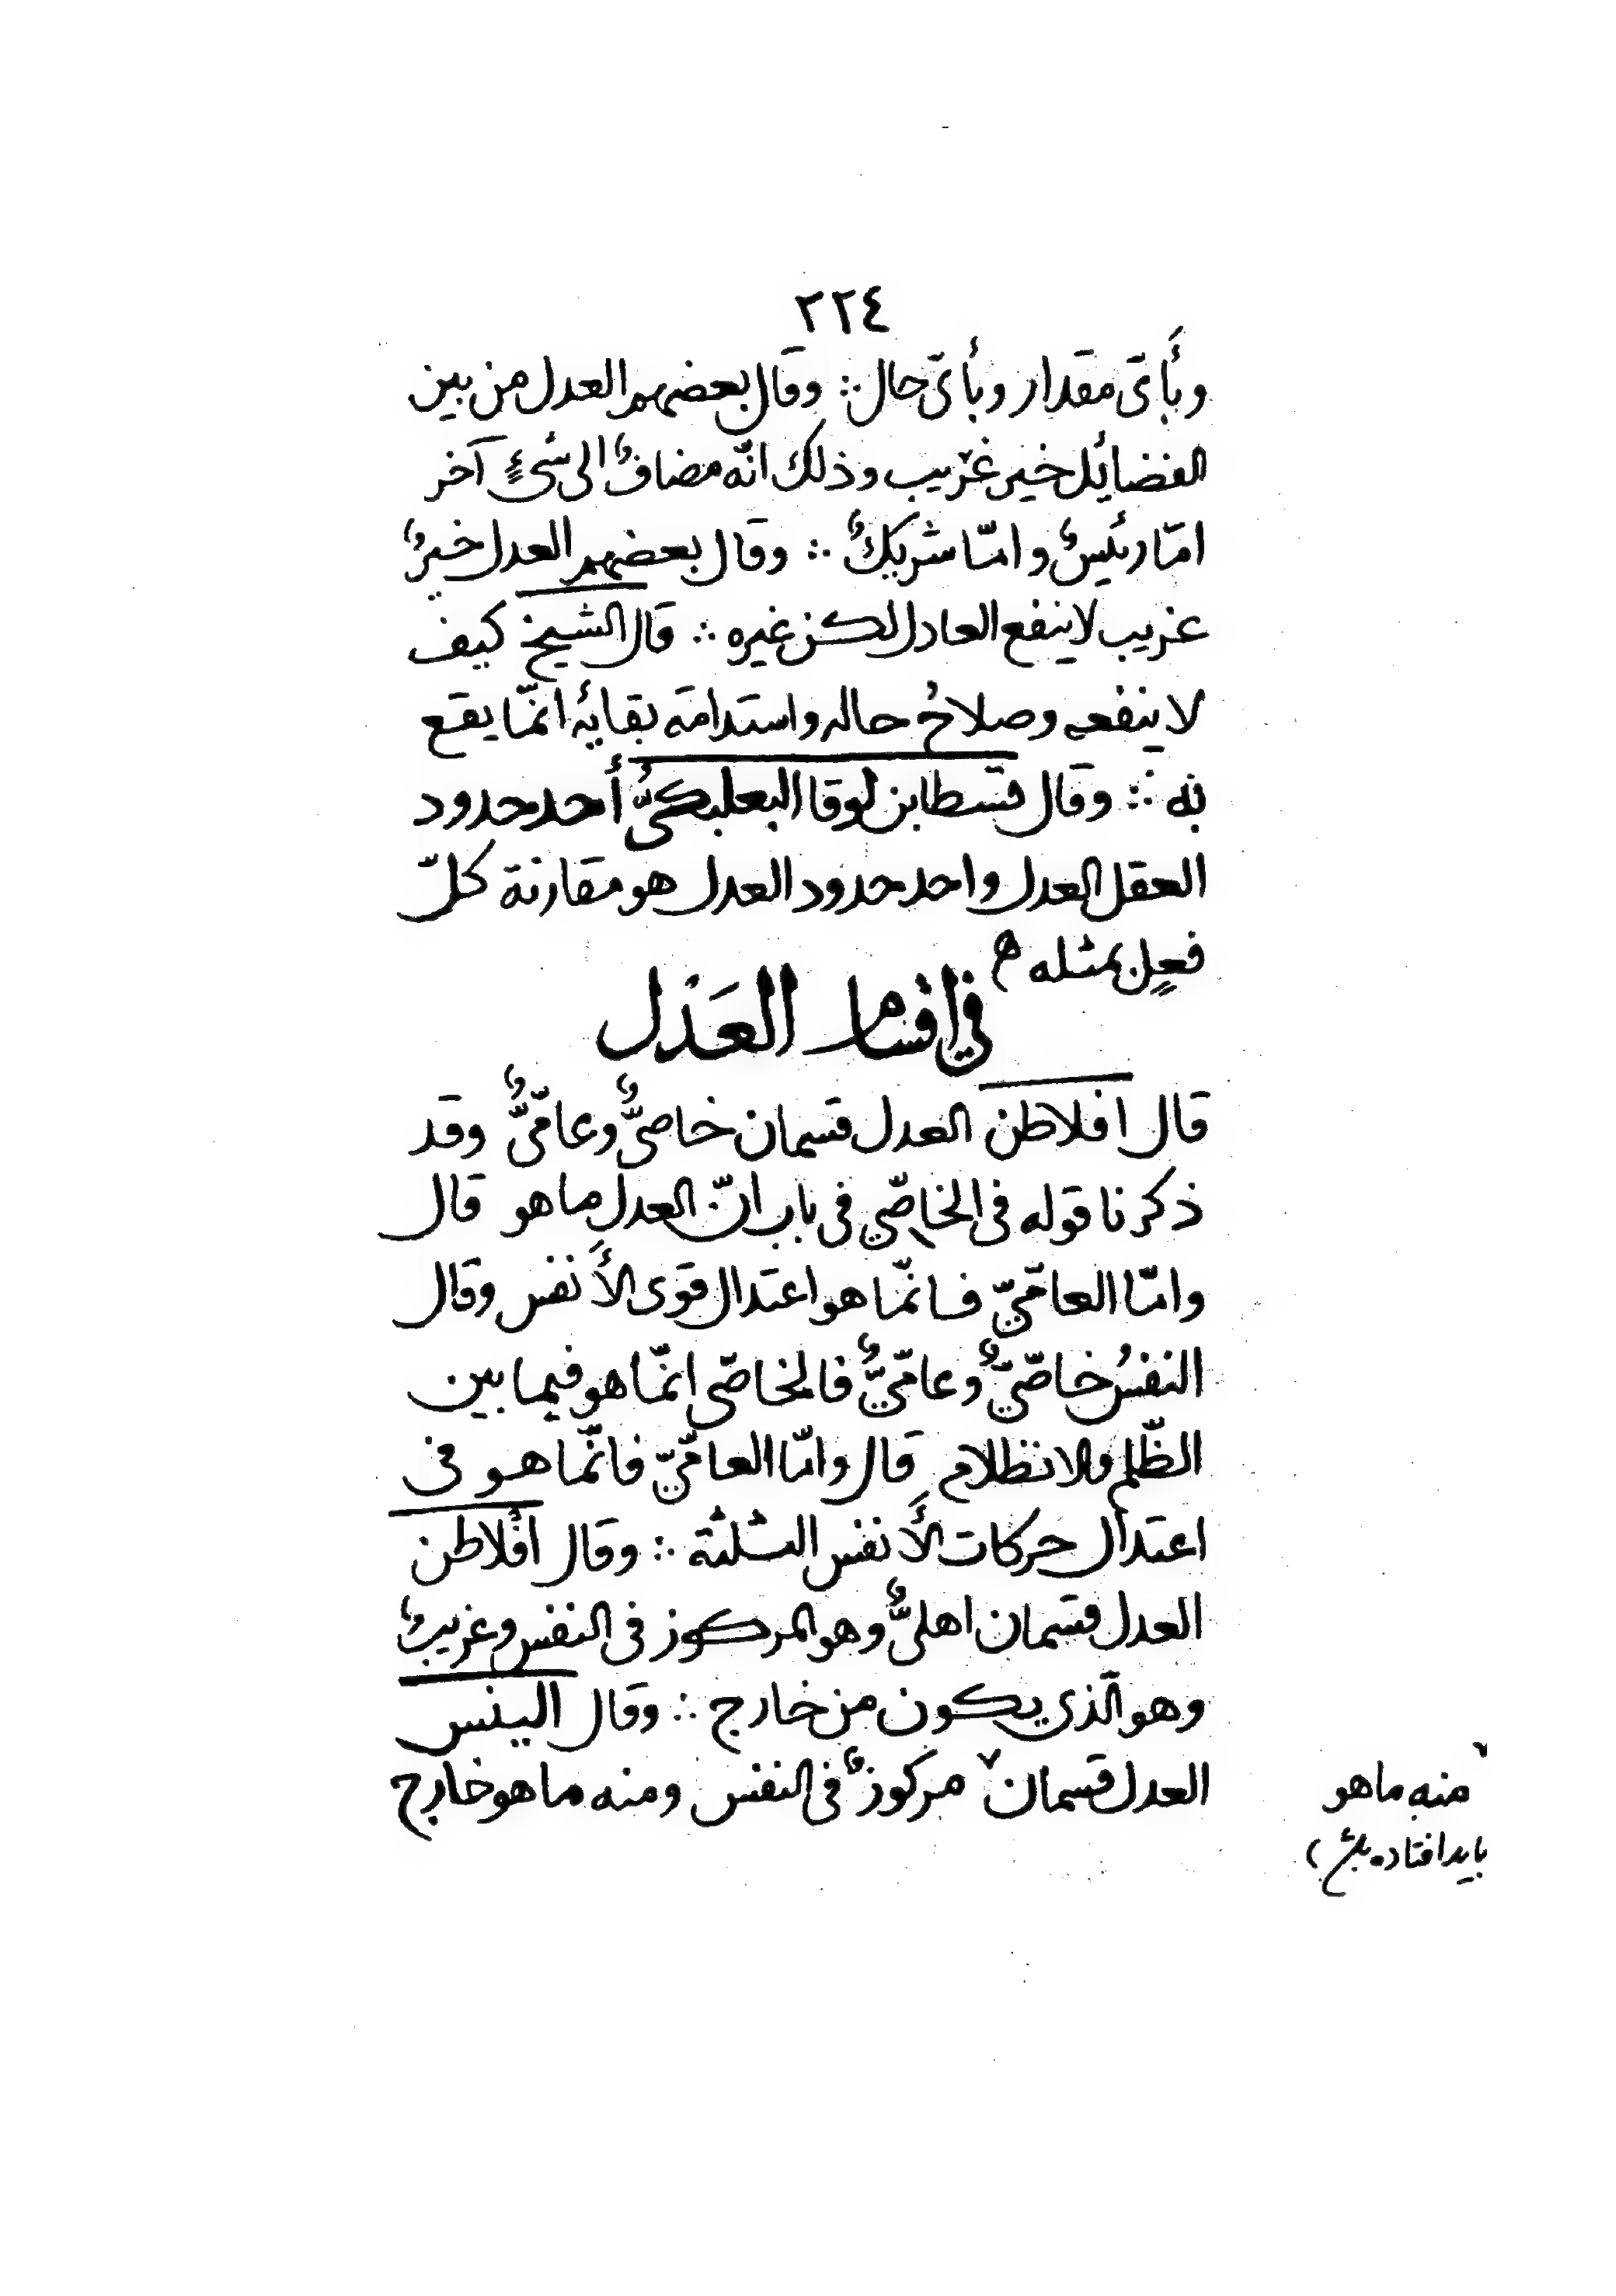 ٢٢٤
وبأَىّ مقدار وبأىّ حال ∴ وقال بعضهم العدل من بين
الفضائل خير غريب وذلك انّه مضافٌ الى شئٍ آخر
امّا رئيسٌ و امّا شريكٌ ∴ وقال بعضهم العدل خيرٌ
غريب لا ينفع العادل لكن غيره ∴ قال الشيخ كيف
لا ينفعه وصلاحُ حاله واستدامة بقائه انّما يقع
به ∴ وقال قسطا بن لوقا البعلبكىُّ أحد حدود
العقل العدل واحد حدود العدل هو مقارنة كلّ
فعلٍ بمثله ه‍
في اقسام العَدْل
قال افلاطن العدل قسمان خاصىٌّ وعامّىٌّ وقد
ذكرنا قوله فى الخاصّي فى باب انّ العدلِ ما هو قال
وامّا العامّيّ فانّما هو اعتدال قوى الأَنفس وقال
النفسُ خاصّيٌّ وعامّيٌّ فالخاصّى انّما هو فيما بين
الظّلم والانظلام قال وامّا العامّيّ فانّما هو فى
اعتدال حركات الأَنفس الثلثة ∴ وقال افلاطن
العدل قسمان اهلىٌّ وهو المركوز فى النفس وغريبٌ
وهو الّذي يكون من خارج ∴ وقال الينس
العدل قسمان ٧ مركوزٌ فى النفس ومنه ما هو خارج
٧ منه ما هو
بايد افتاده